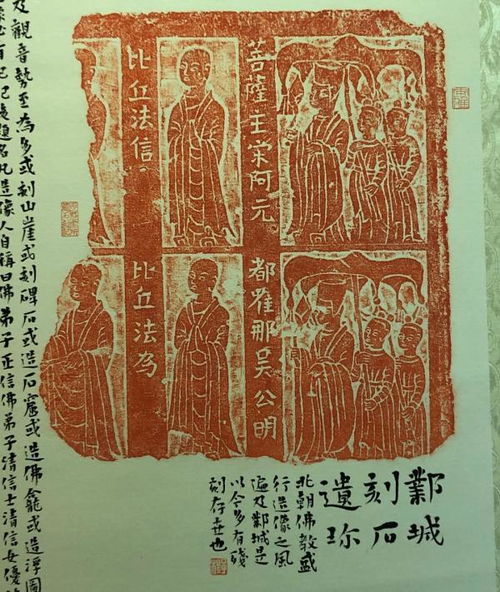 菩薩王宋阿元
比丘法信
都維那吴公明
比丘法為
鄴城
刻石
遺珍
北朝佛教盛
行造像之風
遍及鄴城是
以今多有殘
刻存世也
及觀音勢至為多或刻山崖或刻碑石或造石窟或造佛龕或造浮圖
題名凡造像人自稱曰佛弟子正信佛弟子清信士清信女優